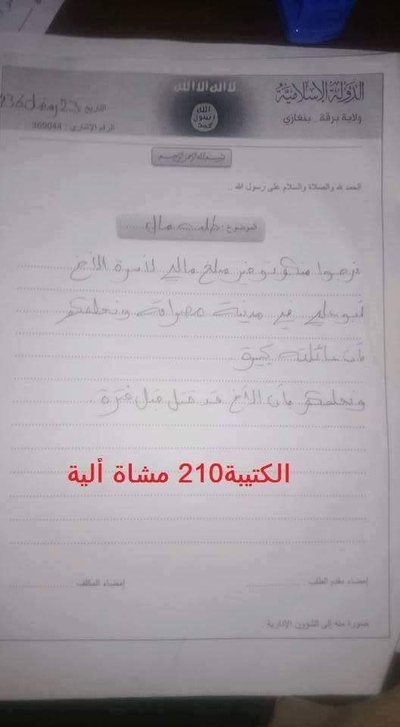 لا اله الا الله
الدولة الإسلامية
ولاية برقة .. بنغازي
الله
رسول
محمد
التاريخ 23 رمضان 1436
الرقم الإشاري : 369044
بسم الله الرحمن الرحيم
الحمد لله والصلاة والسلام على رسول الله ..
الموضوع: طلب مال
نرجوا منكم توفير مبلغ مالي لأسرة الأخ
أبو علي في مدينة مصراته ونعلمكم
بأن عائلته كبيرة
ونعلمكم بأن الأخ قد قتل قبل فترة.
الكتيبة210 مشاة ألية
إمضاء مقدم الطلب
إمضاء المكلف:
صورة منه إلى الشؤون الإدارية